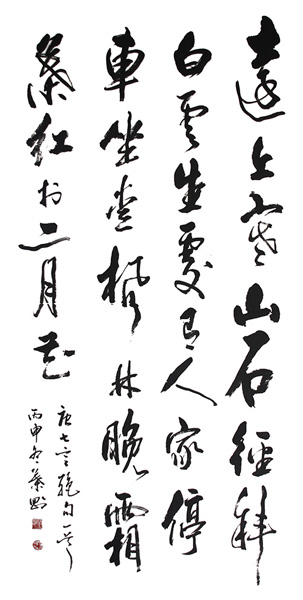 遠上寒山石徑斜
白雲生處有人家停
車坐愛楓林晚霜
葉紅於二月花
唐七言絕句一首
丙申冬葉